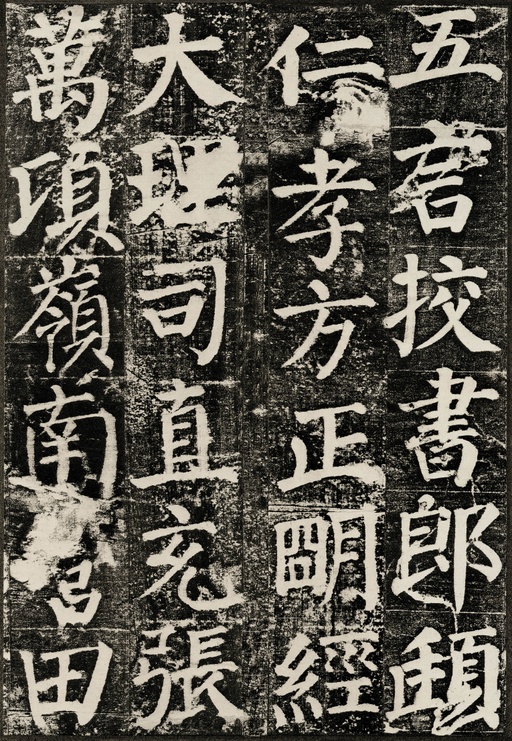 五君挍書郎頲
仁孝方正朙經
大理司直充張
萬頃嶺南營田